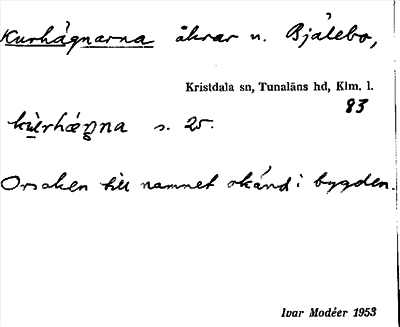 Kurhägnarna åkrar n. Bjälebo,
Kristdala sn, Tunaläns hd, Klm. l.
83
kùrhæŋna s. 25.
Orsaken till namnet okänd i bygden.
Ivar Modéer 1953